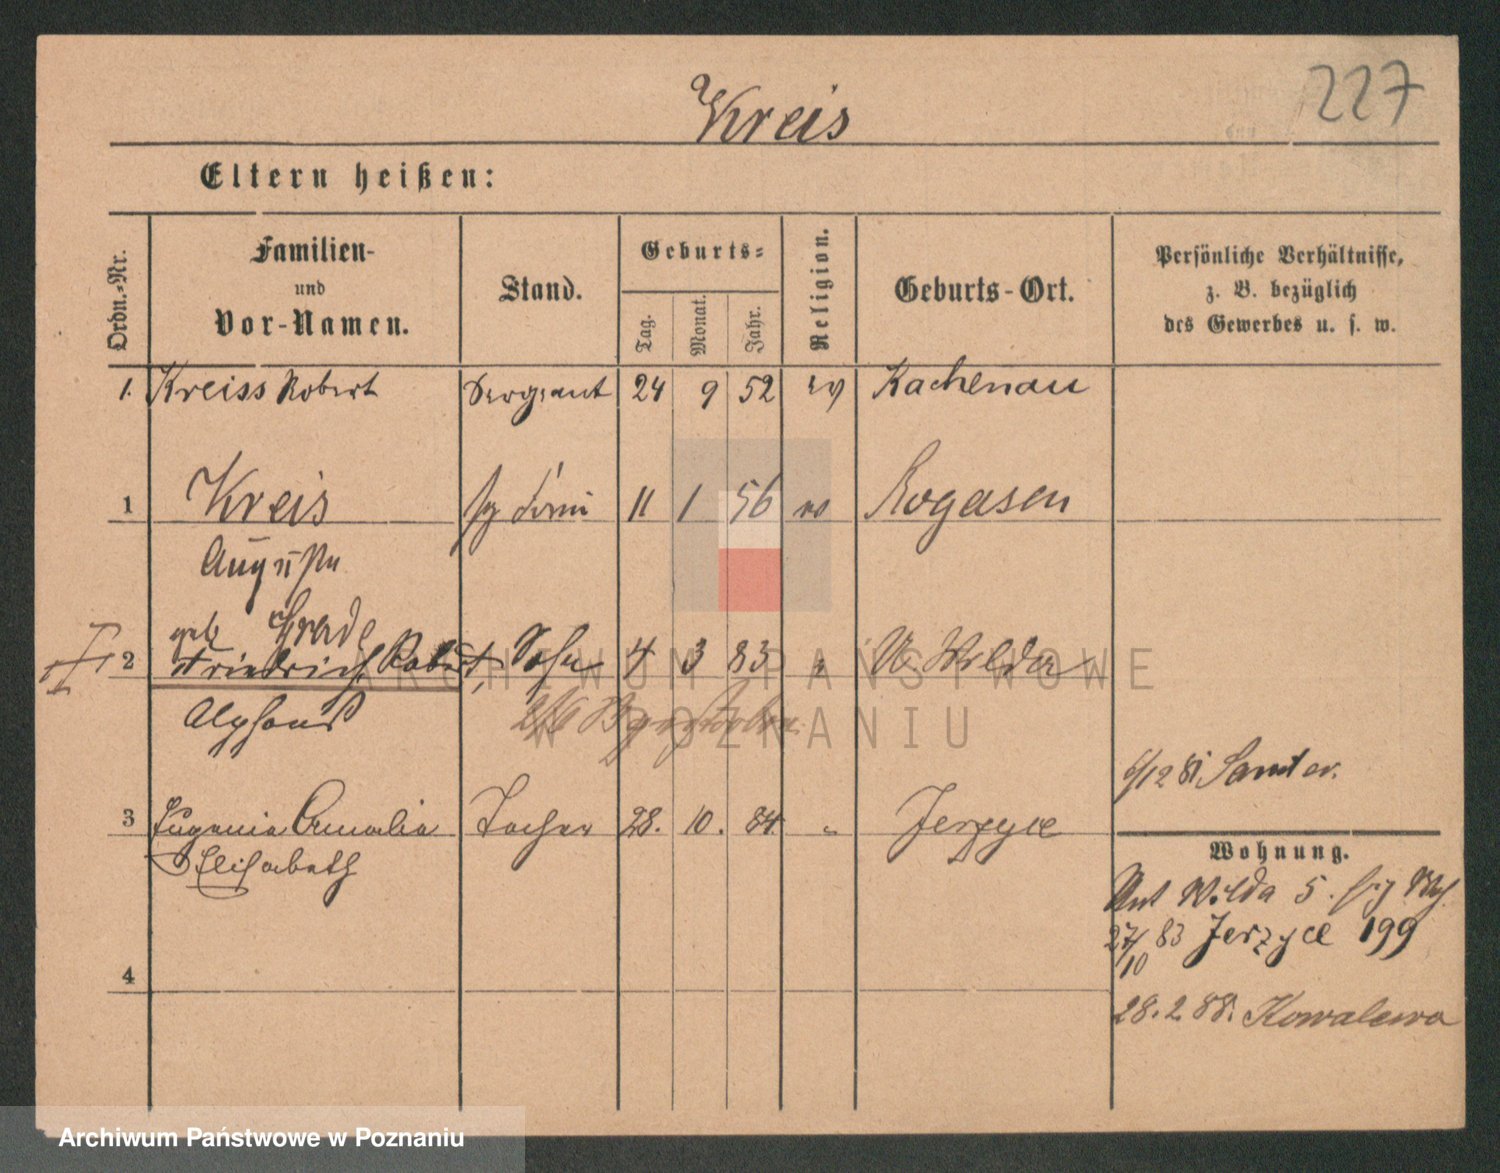 227
Kreis
Eltern heißen:
Ordn.-Nr.
Familien-
und
Vor-Namen.
Stand.
Geburts-
Tag.
Monat.
Jahr.
Religion.
Geburts-Ort.
Persönliche Verhältnisse,
z. B. bezüglich
des Gewerbes u. s. w.
1. Kreiss Robert Sergeant 24 9 52 ev Kachenau
1 Kreis 11 1 56 Rogasen
geb
2 Friedrich Robert, Sohn 4 3 83 " U. Wilda
Alphons
6/12 81 Samter.
3 Eugenie Amalie Tochter 28. 10. 84 " Jerzyce
Elisabeth
Wohnung.
Unt Wilda 5.
27/10 83 Jerzyce 199
4
28.2.88. Kowalewo
ARCHIWUM PAŃSTWOWE
W POZNANIU
Archiwum Państwowe w Poznaniu